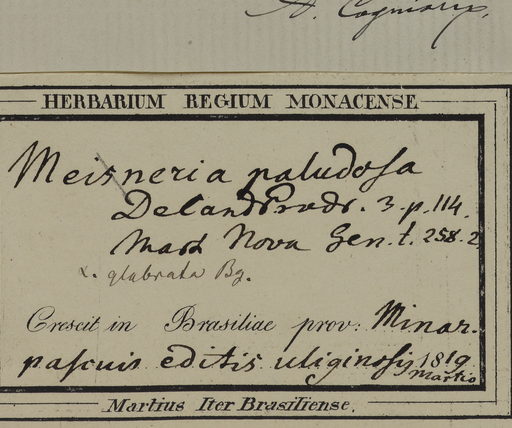 A. Cogniaux.
HERBARIUM REGIUM MONACENSE
Meisneria paludosa
DeCand Prodr. 3. p. 114.
Mart Nova Gen. t. 258. 2
α. glabrata Bg.
Crescit in Brasiliae prov: Minar.
pascuis editis uliginosis 1819
Martio
Martius Iter Brasiliense.